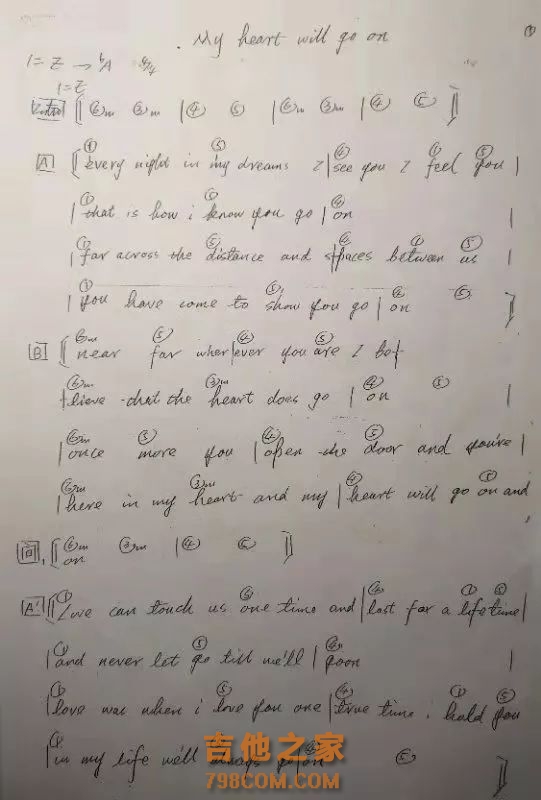 My heart will go on ①
1= E → ᵇA 4/4
1=E
Intro ⑥m ③m | ④ ⑤ | ⑥m ③m | ④ ⑤
① ⑤ ④ ① ⑤
A Every night in my dreams I | see you I feel you |
① ⑤ ④
| that is how i know you go | on |
① ⑤ ④ ① ⑤
| far across the distance and | spaces between us |
① ⑤ ④ ⑤
| you have come to show you go | on
⑥m ⑤ ④ ⑤
B near far wher|ever you are I be|
⑥m ③m ④ ⑤
lieve that the heart does go | on |
⑥m ⑤ ④ ⑤
| once more you | open the door and you're |
⑥m ③m ④ ⑤
| here in my heart and my | heart will go on and
⑥m ③m | ④ ⑤
on
① ⑤ ④ ① ⑤
A' Love can touch us one time and | last for a lifetime |
① ⑤ ④
| and never let go till we'll | goon |
① ⑤ ④ ① ⑤
| love was when i love you one | true time i hold you
① ④ ⑤
| in my life we'll always go | on
吉他之家
798COM.COM